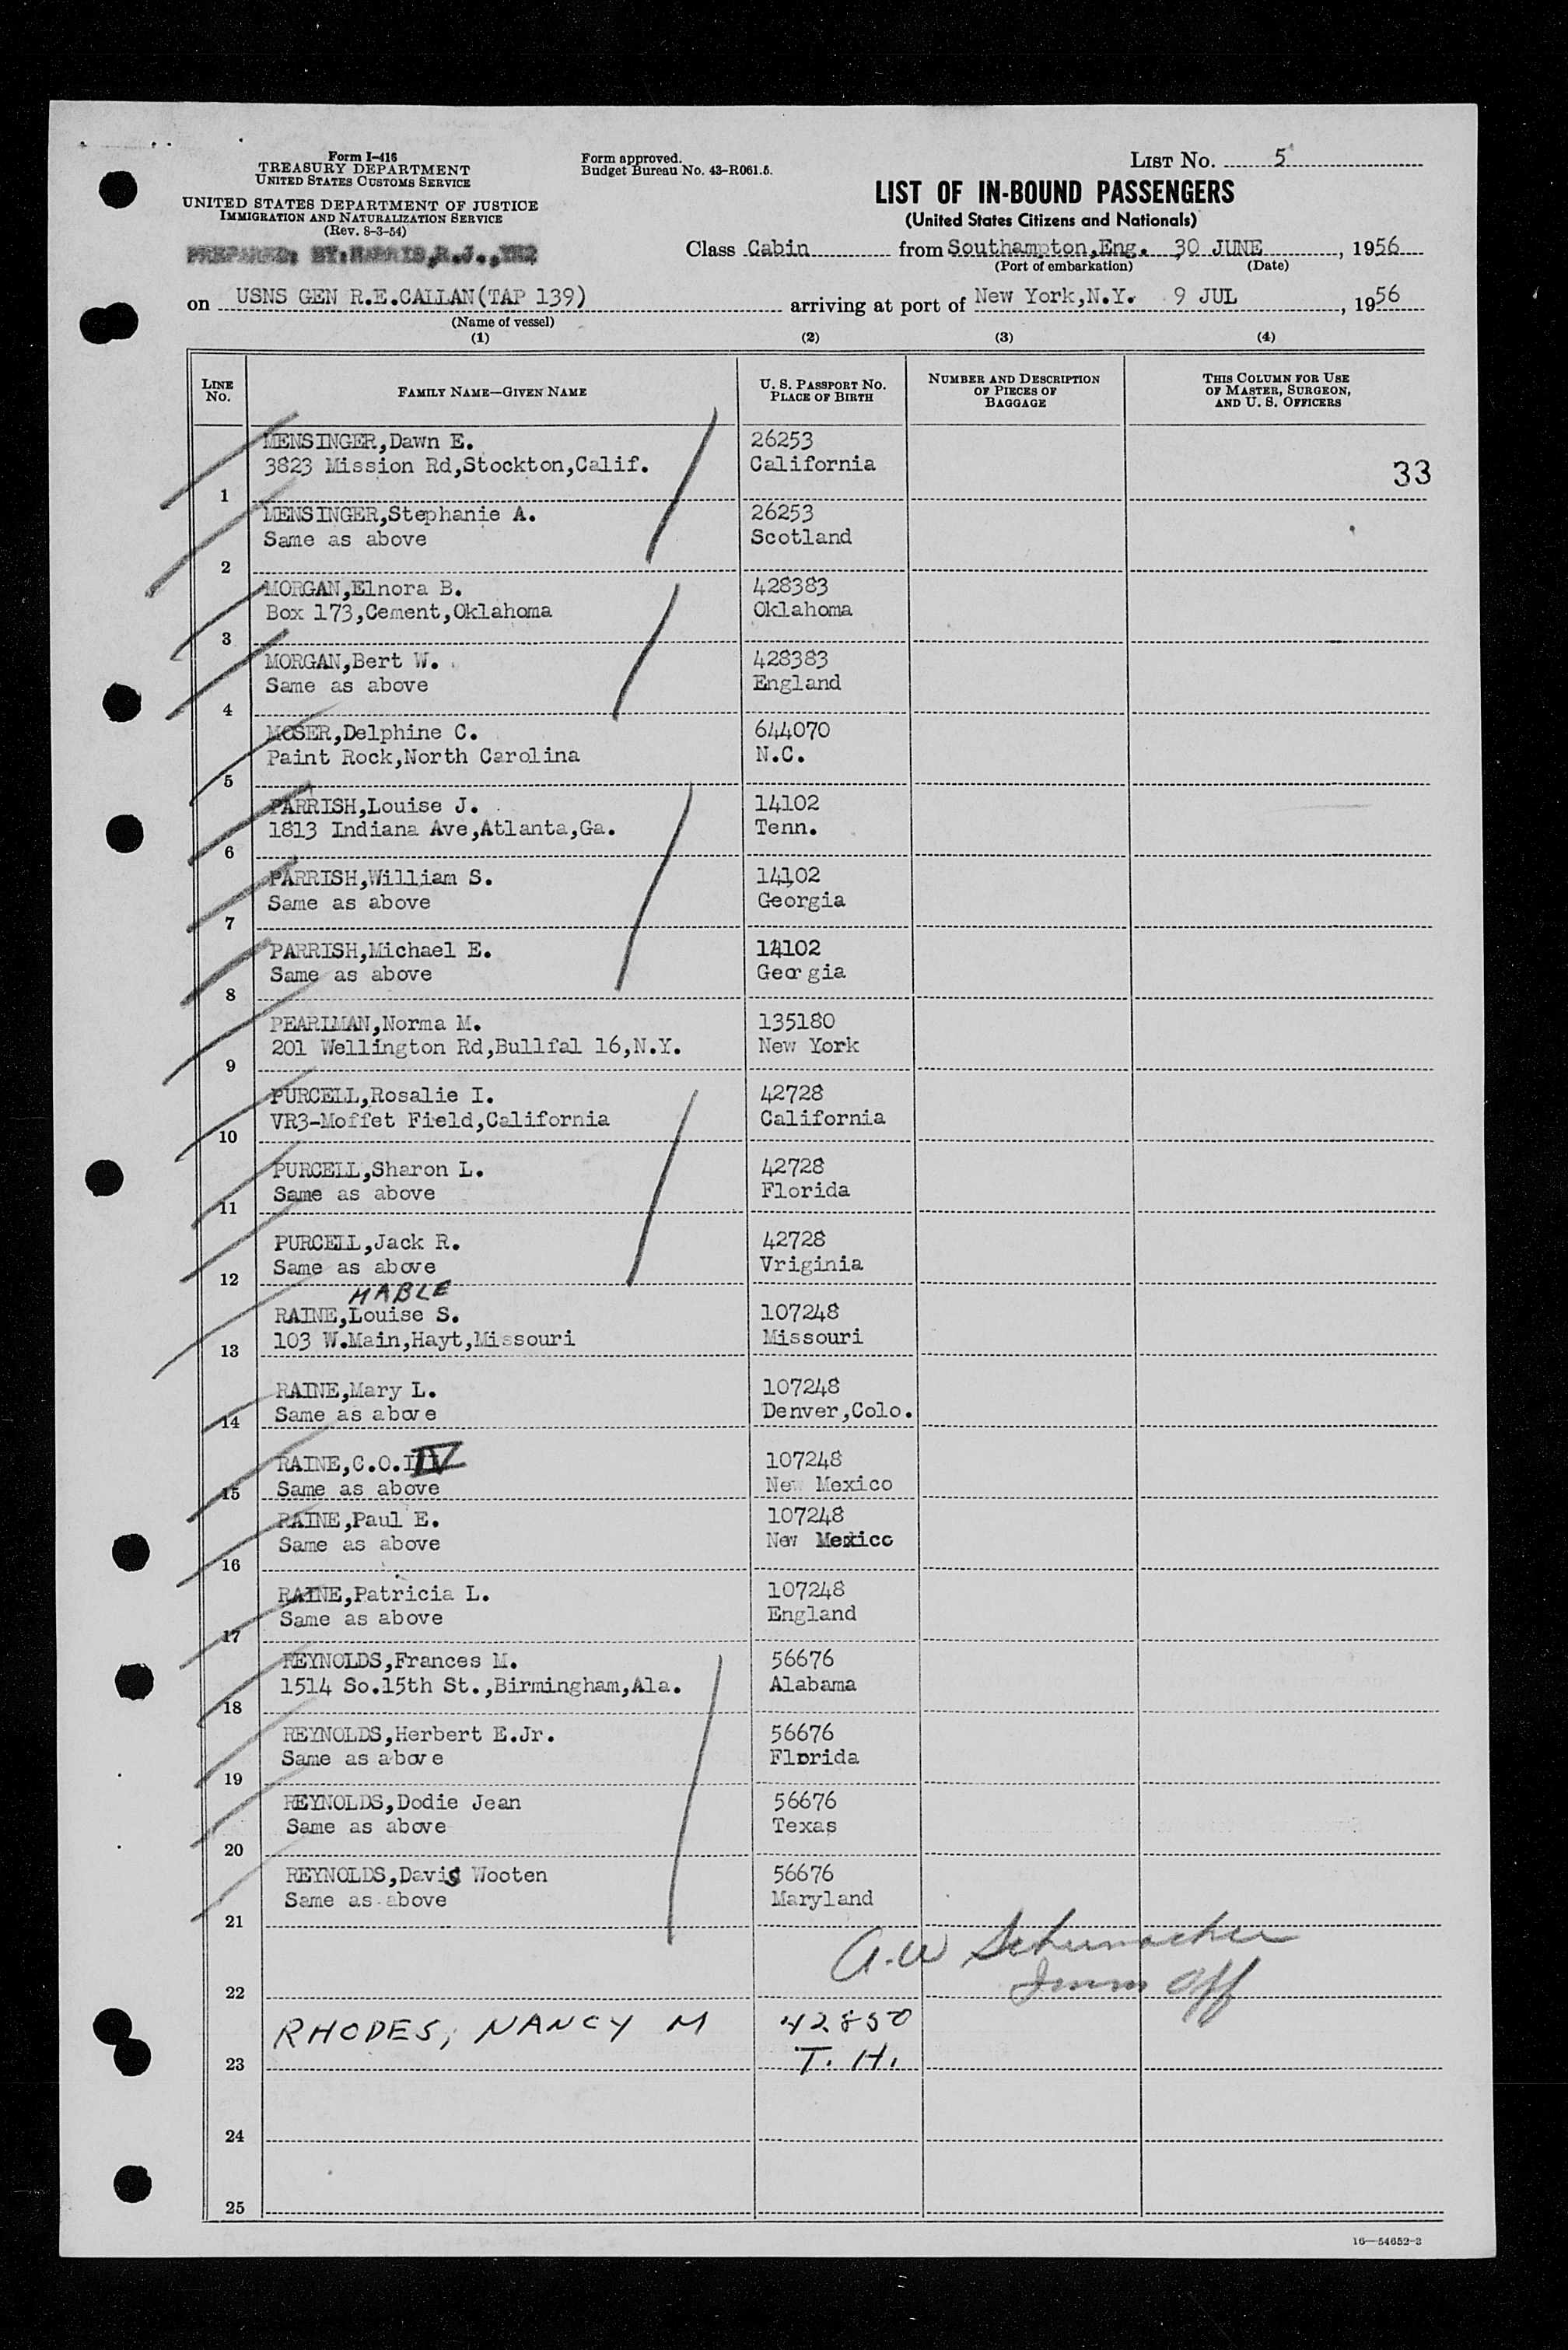 Form I-416
TREASURY DEPARTMENT
UNITED STATES CUSTOMS SERVICE
UNITED STATES DEPARTMENT OF JUSTICE
IMMIGRATION AND NATURALIZATION SERVICE
(Rev. 8-3-54)
PREPARED: BY:HARRIS,R.J.,YN2
Form approved.
Budget Bureau No. 43-R061.5.
LIST No. 5
LIST OF IN-BOUND PASSENGERS
(United States Citizens and Nationals)
Class Cabin from Southampton,Eng. 30 JUNE, 1956
(Port of embarkation) (Date)
on USNS GEN R.E.CALLAN(TAP 139) arriving at port of New York,N.Y. 9 JUL, 1956
(Name of vessel)
(1) (2) (3) (4)
LINE No. FAMILY NAME—GIVEN NAME U. S. PASSPORT No. PLACE OF BIRTH NUMBER AND DESCRIPTION OF PIECES OF BAGGAGE THIS COLUMN FOR USE OF MASTER, SURGEON, AND U. S. OFFICERS
MENSINGER,Dawn E. 26253
3823 Mission Rd,Stockton,Calif. California 33
1
MENSINGER,Stephanie A. 26253
Same as above Scotland
2
MORGAN,Elnora B. 428383
Box 173,Cement,Oklahoma Oklahoma
3
MORGAN,Bert W. 428383
Same as above England
4
MOSER,Delphine C. 644070
Paint Rock,North Carolina N.C.
5
PARRISH,Louise J. 14102
1813 Indiana Ave,Atlanta,Ga. Tenn.
6
PARRISH,William S. 14102
Same as above Georgia
7
PARRISH,Michael E. 14102
Same as above Georgia
8
PEARLMAN,Norma M. 135180
201 Wellington Rd,Bullfal 16,N.Y. New York
9
PURCELL,Rosalie I. 42728
VR3-Moffet Field,California California
10
PURCELL,Sharon L. 42728
Same as above Florida
11
PURCELL,Jack R. 42728
Same as above Vriginia
12
MABLE
RAINE,Louise S. 107248
103 W.Main,Hayt,Missouri Missouri
13
RAINE,Mary L. 107248
Same as above Denver,Colo.
14
RAINE,C.O.IV 107248
Same as above New Mexico
15
RAINE,Paul E. 107248
Same as above New Mexico
16
RAINE,Patricia L. 107248
Same as above England
17
REYNOLDS,Frances M. 56676
1514 So.15th St.,Birmingham,Ala. Alabama
18
REYNOLDS,Herbert E.Jr. 56676
Same as above Florida
19
REYNOLDS,Dodie Jean 56676
Same as above Texas
20
REYNOLDS,Davis Wooten 56676
Same as above Maryland
21
A.W Schumacher
Imm Off
22
RHODES, NANCY M 42850
T. H.
23
24
25
16—54652-3